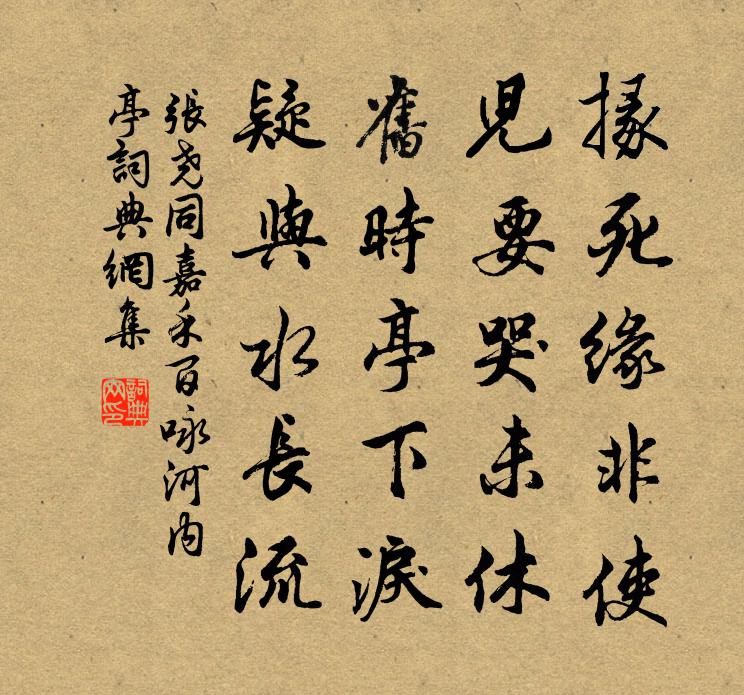 掾死緣非使
児要哭未休
舊時亭下淚
疑與水長流
張堯同嘉禾百咏河内
亭詞典網集
詞典
网印